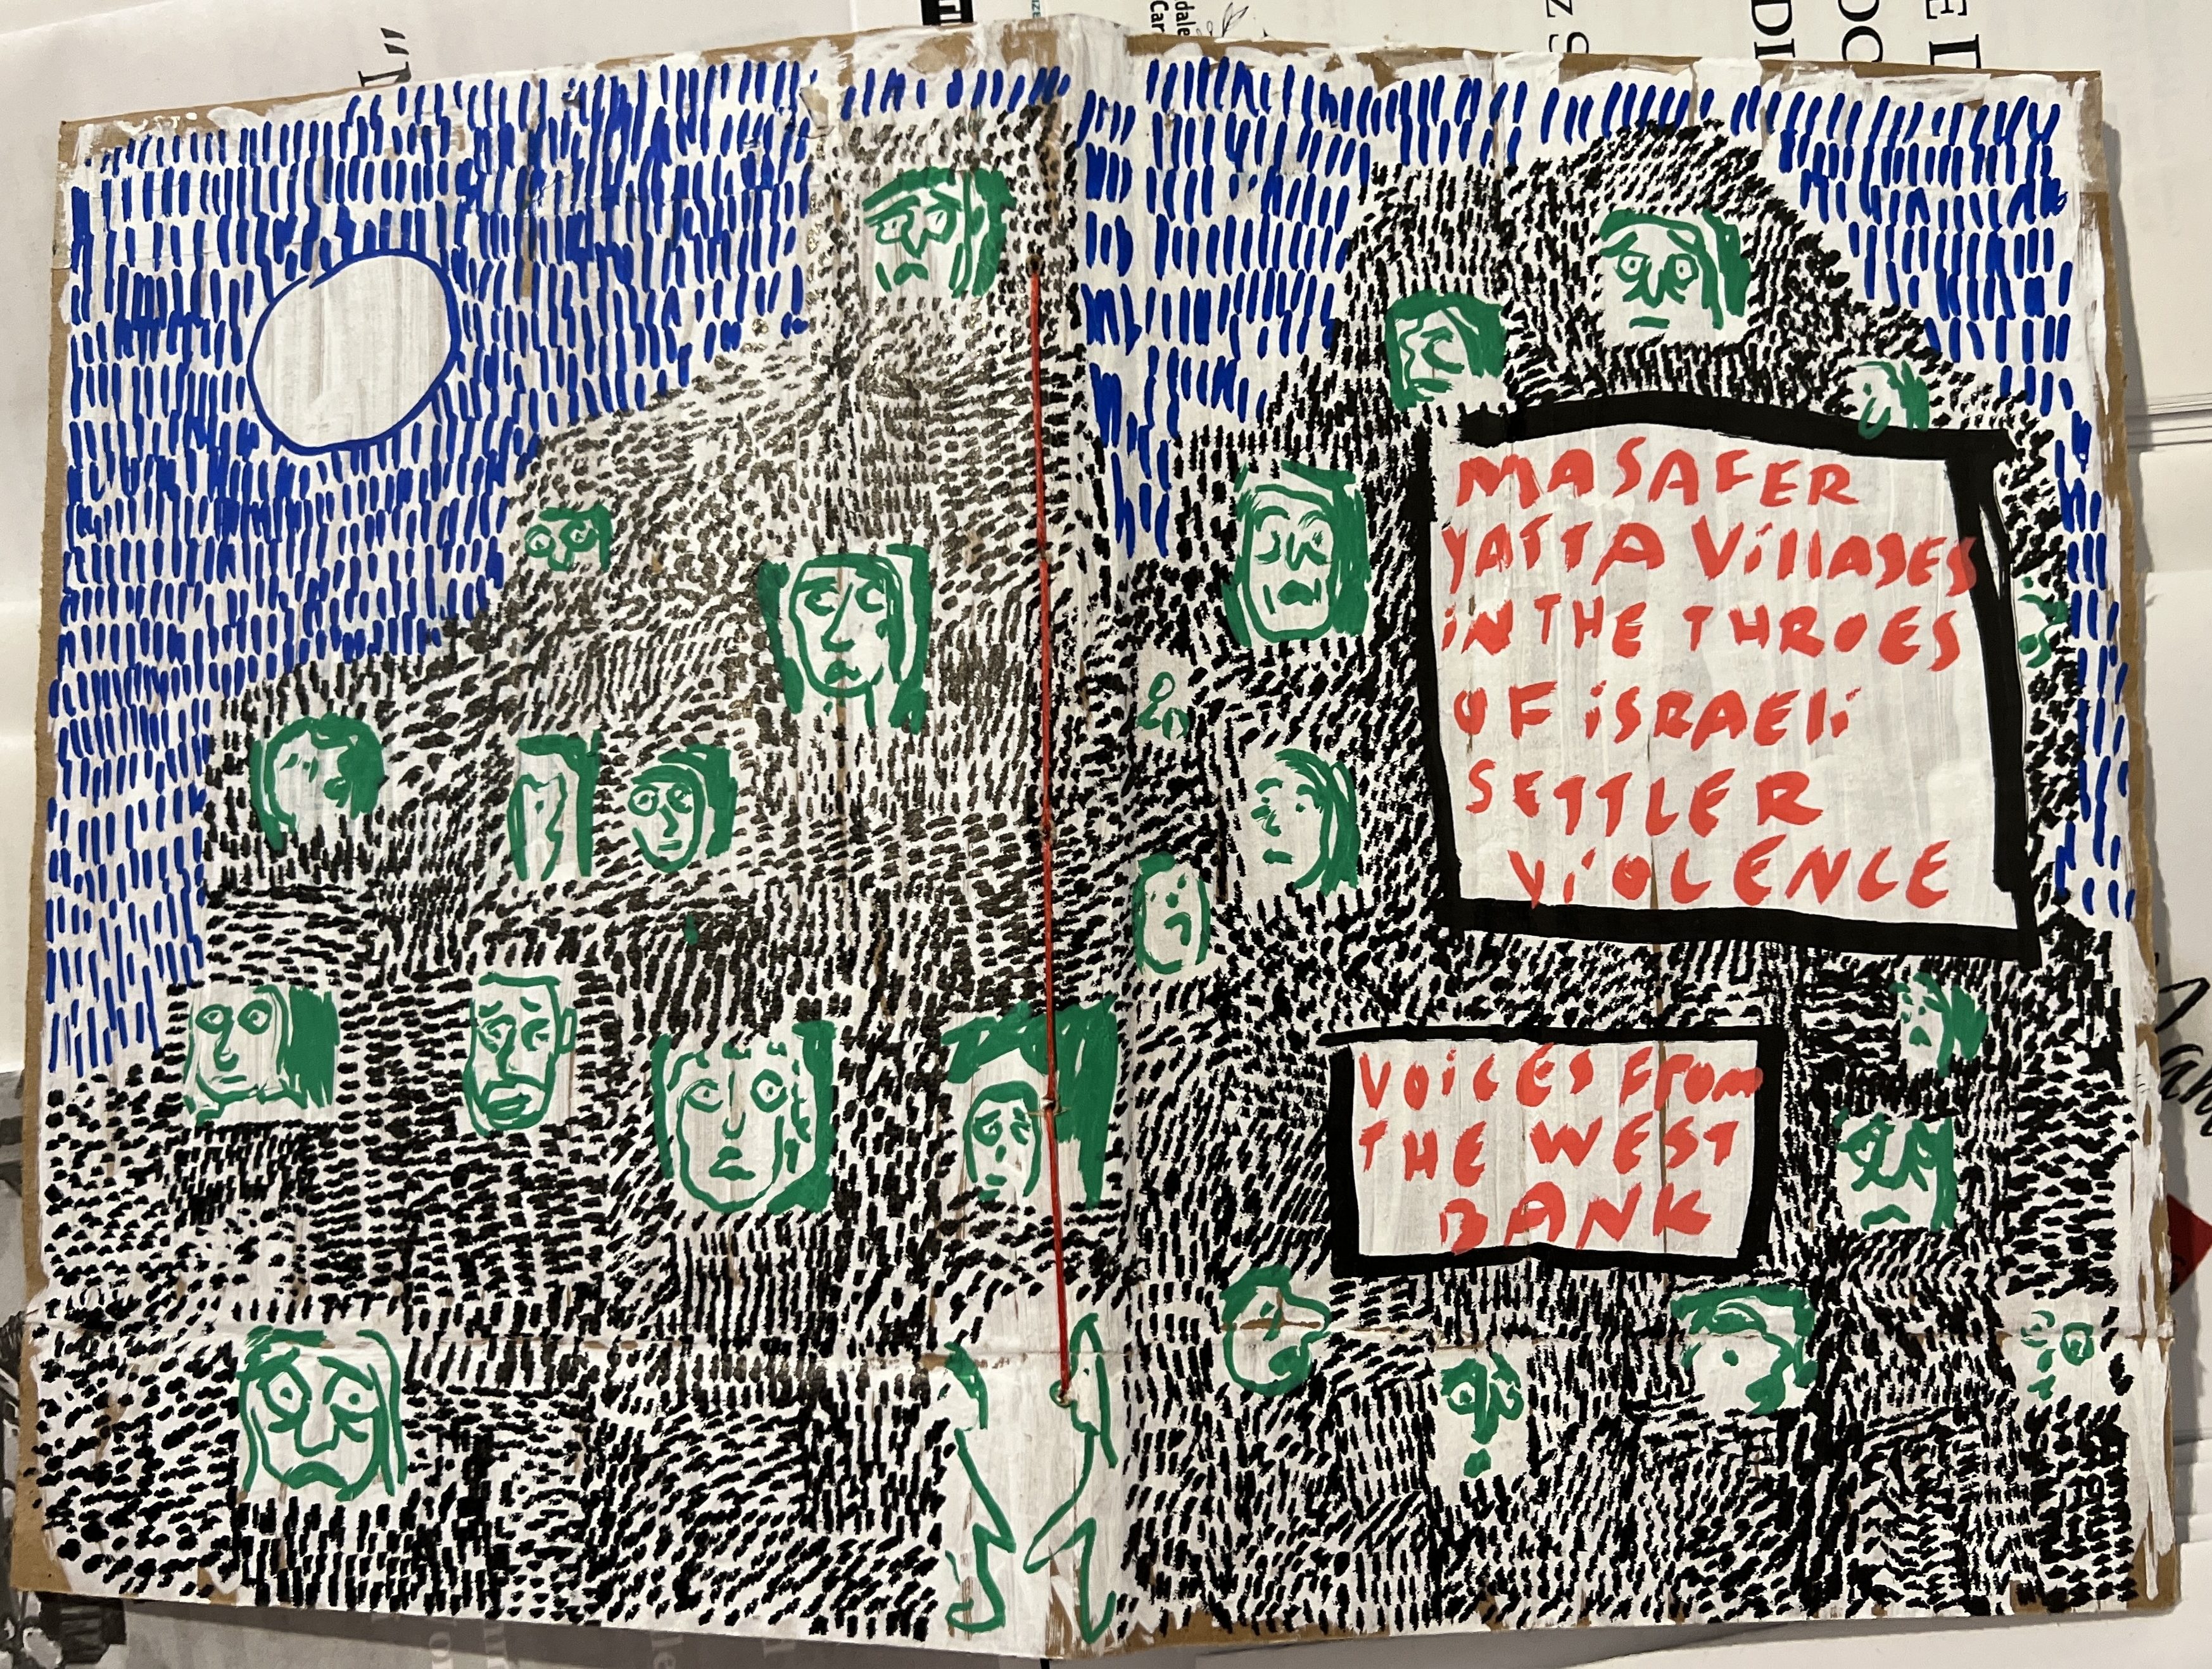 MASAFER
YATTA VillAGES
iN THE THROES
OF iSRAELi
SETTLER
ViOLENCE
VOiCES FrOM
THE WEST
BANK